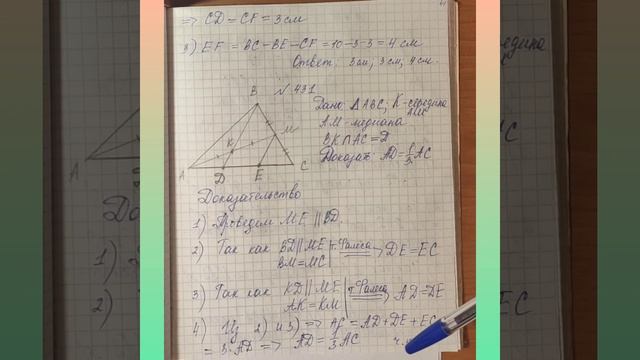 => CD = CF = 3 см
3) EF = BC - BE - CF = 10 - 3 - 3 = 4 см
Ответ: 3 см, 3 см, 4 см.
N 431
Дано: △ABC; K - середина AM
AM - медиана
BK ∩ AC = D
Доказать: AD = 1/3 AC
B
K
M
A
D
E
C
Доказательство
1) Проведем ME || BD.
2) Так как BD || ME
BM = MC
т. Фалеса => DE = EC
3) Так как KD || ME
AK = KM
т. Фалеса => AD = DE
4) Из 2) и 3) => AC = AD + DE + EC
= 3·AD => AD = 1/3 AC